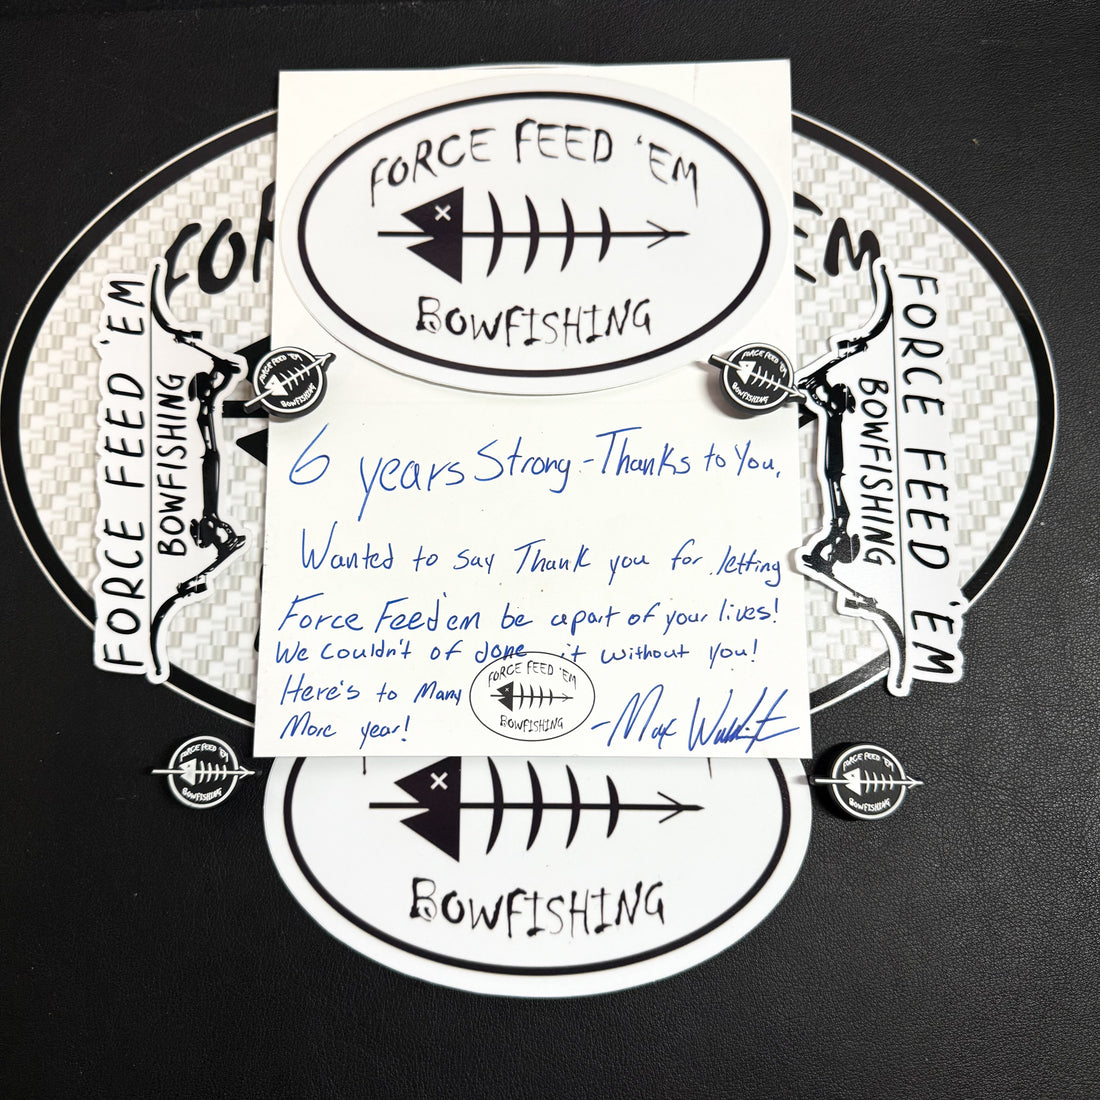 FORCE FEED 'EM
BOWFISHING
FOR
'EM
FORCE FEED 'EM
BOWFISHING
FORCE FEED 'EM
BOWFISHING
FORCE FEED 'EM
BOWFISHING
FORCE FEED 'EM
BOWFISHING
6 years Strong - Thanks to You,
Wanted to say Thank you for letting
Force Feed'em be apart of your lives!
We couldn't of done it without you!
Here's to Many
More year!
FORCE FEED 'EM
BOWFISHING
- Max
FORCE FEED 'EM
BOWFISHING
FORCE FEED 'EM
BOWFISHING
BOWFISHING